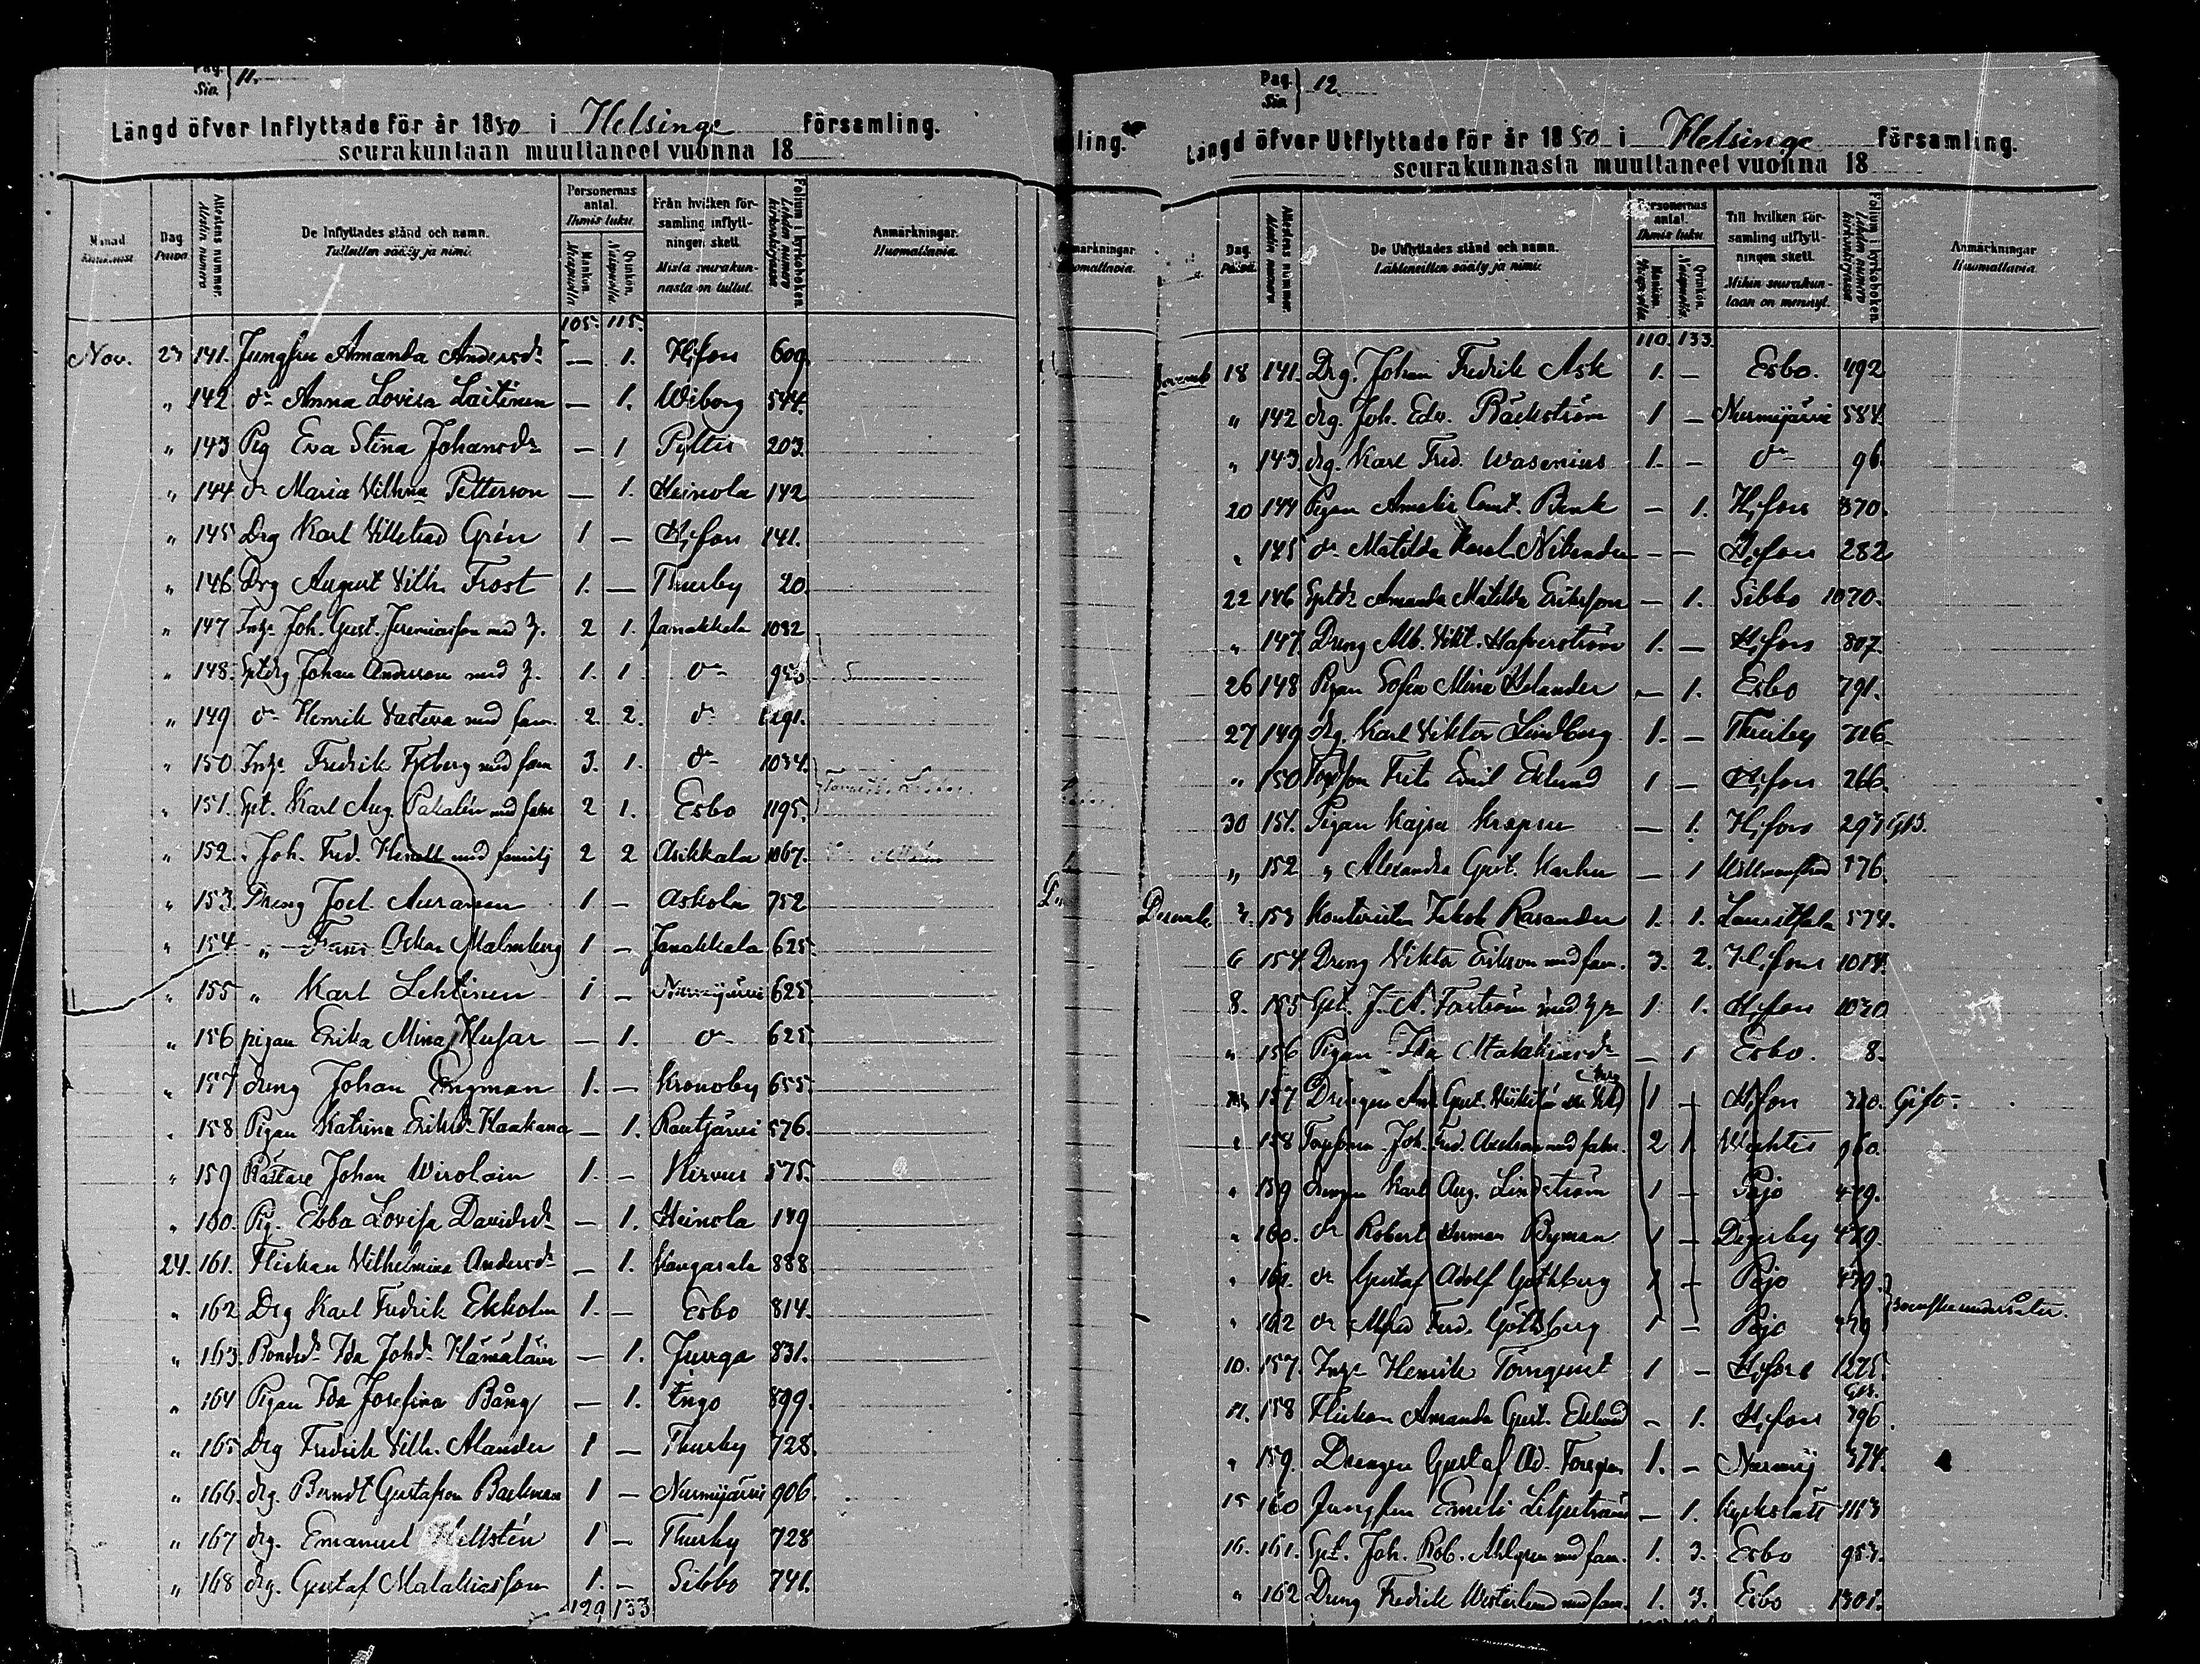 Pag. Sin. 11.
Längd öfver Inflyttade för år 1880 i Helsinge församling.
seurakuntaan muuttaneet vuonna 18
Månad Dag Päivä Attestens nummer. De Inflyttades stånd och namn. Tulleitten sääty ja nimi. Personernas antal. Ihmis luku. Mankön. Miespuolta Qvinkön. Naispuolta Från hvilken församling inflyttningen skett. Mistä seurakunnasta on tullut. Folium i kyrkoboken. Anmärkningar. Huomattavia.
105. 115.
Nov. 23 141. Jungfru Amanda Andersdr — 1. H;fors 609.
" 142 dr Anna Lovisa Laitinen — 1. Wiborg 544.
" 143 Pig Eva Stina Johansdr — 1 Pyttis 203.
" 144 dr Maria Vilhna Petterson — 1. Heinola 142
" 145 Drg Karl Grén 1 — H;fors 141.
" 146 Drg August Vilh. Frost 1. — Thusby 20.
" 147 Joh. Gust. Jeremiasson med 2 1. Janakkala 1032
" 148. Johan Anderson med 1. 1 dr
" 149 dr Henrik med fam. 2 2. dr 1291.
" 150 Fredrik med fam 3. 1. dr 1034.
" 151. Spt. Karl Aug. med fam 2 1. Esbo 1195.
" 152. Joh. Fred. med familj 2 2 Asikkala 1067.
" 153. Dreng Joel Auranen 1 — Askola 752
" 154 " Frans Oskar Malmberg 1 — Janakkala 625
" 155 " Karl Lehtinen 1 — Nurmijärvi 625
" 156 pigan Erika Mina Husar — 1. dr 625
" 157 dreng Johan Engman 1. — Kronoby 655
" 158 Pigan Katrina Eriksdr Haakana — 1. Rautjärvi 576.
" 159 Johan Wirolain 1. — Kirvus 575.
" 160. Pig. Ebba Lovisa Davidsdr — 1. Heinola 149
24. 161. Flickan Vilhelmina Andersdr — 1. Kangasala 888
" 162 Drg Karl Fredrik Ekholm 1. — Esbo 814.
" 163. Bondedr Ida Johdr Hämäläin — 1. 831.
" 164 Pigan Ida Josefina Bång — 1. Ingo 899.
" 165 Drg Fredrik Vilh. Alander 1 — Thusby 728.
" 166. drg. Berndt Gustafson Backman 1 — Nurmijärvi 906.
" 167 drg. Emanuel Hellstén 1 — Thusby 728
" 168 drg. Gustaf Malakiasson 1. — Sibbo 741.
129 133
Pag. Sin 12.
Längd öfver Utflyttade för år 1880 i Helsinge församling.
seurakunnasta muuttaneet vuonna 18
Dag. Päivä. Attestens nummer. De Utflyttades stånd och namn. Lähteneitten sääty ja nimi. Personernas antal. Ihmis luku. Mankön. Qvinkön. Till hvilken församling utflyttningen skett. Mihin seurakuntaan on mennyt. Folium i kyrkoboken. Anmärkningar Huomattavia.
110. 133.
18 141. Drg. Johan Fredrik Ask 1. — Esbo. 492
" 142 drg. Joh. Edv. Bäckström 1 — Nurmijärvi 584.
" 143. drg. Karl Fred. Wasenius 1. — dr 96.
20 144 Pigan Amalia Const. Benk — 1. H;fors 870.
" 145 dr Matilda — — H;fors 282
22 146 Amanda Matilda Eriksson — 1. Sibbo 1070.
" 147. Dreng Alb. Vikt. Hafverström 1. — H;fors 807.
26 148 Pigan Sofia Mina Helander — 1. Esbo 791.
27 149 drg. Karl Viktor Lindberg 1. — Thusby
" 150 Frits Emil Eklund 1 — H;fors 266.
30 151. Pigan Kajsa — 1. H;fors 297
" 152 " Alexandra Gust. Karhu — 1 176.
3. 153 Jakob Rasander 1. 1. 574.
6 154 Dreng Viktor Erikson med fam. 3. 2. H;fors 1014.
8. 155 Spt. J. A. Forström med 1. 1. H;fors 1030
" 156 Pigan Ida Malakiasdr — 1 Esbo. 8.
157 Drengen Gust. 1 — H;fors Gift.
" 158 Joh. Fred. Axelson med fam. 2 1 Wichtis 960.
" 159 drengen Karl Aug. Lindström 1 — Pojo 479.
" 160. dr Robert Herman Byman 1 — Degerby 479.
" 161. dr Gustaf Adolf Göthberg 1 — Pojo 479.
" 162 dr Alfred Ferd. Göthberg 1 — Pojo 479 Svenska undersåter.
10. 157. Henrik Törnqvist 1 — H;fors 1275.
11. 158 Flickan Amanda Gust. Eklund — 1. H;fors 796
" 159. Drengen Gustaf Ad. 1. — Nurmij 374.
15 160 Jungfru Emili — 1. Kyrkslätt 1113
16. 161. Spt. Joh. Rob. Ahlgren med fam. 1. 3. Esbo 953.
" 162 Dreng Fredrik Westerlund med fam. 1. 3. Esbo 1301.